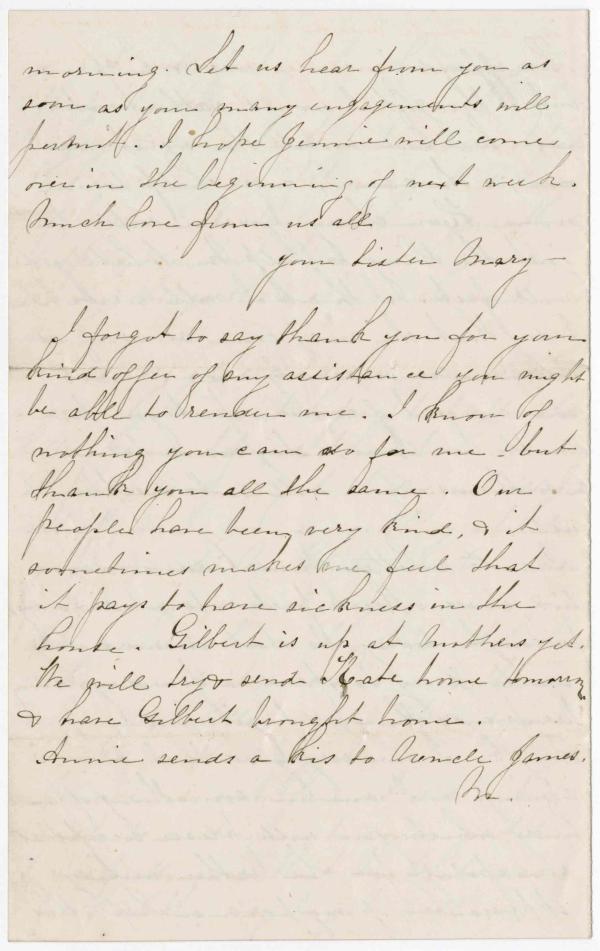 morning. Let us hear from you as
soon as your many engagements will
permit. I hope Jennie will come
over in the beginning of next week.
Much love from us all
your sister Mary —
I forgot to say thank you for your
kind offer of any assistance you might
be able to render me. I know of
nothing you can do for me - but
thank you all the same. Our
people have been very kind, & it
sometimes makes me feel that
it pays to have sickness in the
house. Gilbert is up at Mothers yet.
We will try & send Kate home tomorrow
& have Gilbert brought home.
Annie sends a kis to Uncle James.
M.